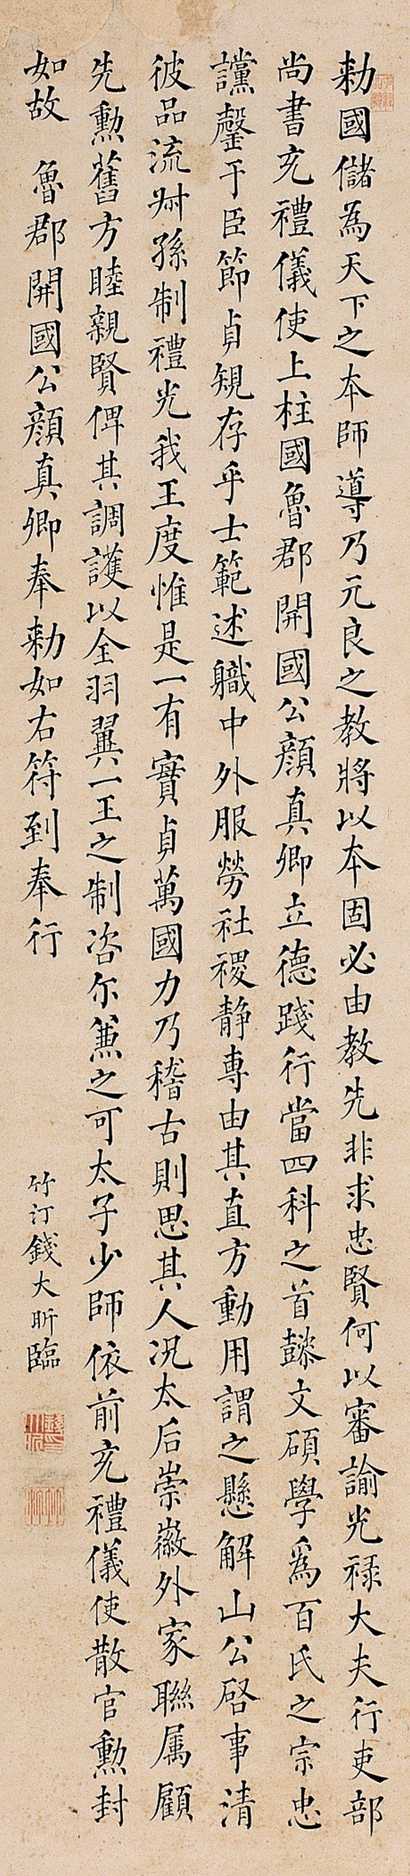 勅國儲為天下之本師導乃元良之教將以本固必由教先非求忠賢何以審諭光祿大夫行吏部
尚書充禮儀使上柱國魯郡開國公顏真卿立德踐行當四科之首懿文碩學爲百氏之宗忠
讜罄于臣節貞規存乎士範述職中外服勞社稷静專由其直方動用謂之懸解山公啓事清
彼品流叔孫制禮光我王度惟是一有實貞萬國力乃稽古則思其人況太后崇徽外家聯属顧
先勲舊方睦親賢俾其調護以全羽翼一王之制咨尔兼之可太子少師依前充禮儀使散官勲封
如故 魯郡開國公顏真卿奉勅如右符到奉行
竹汀錢大昕臨